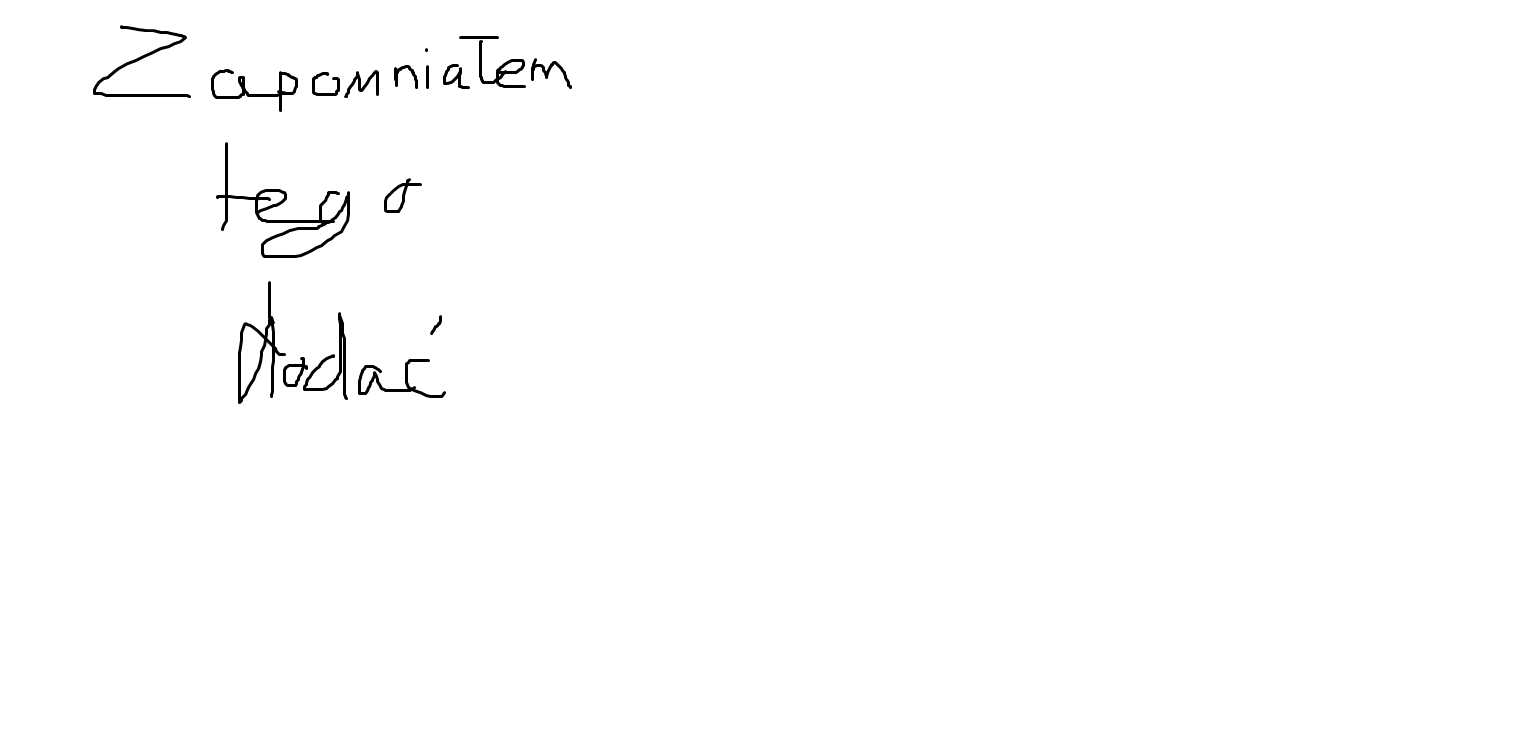 Zapomniałem
tego
dodać